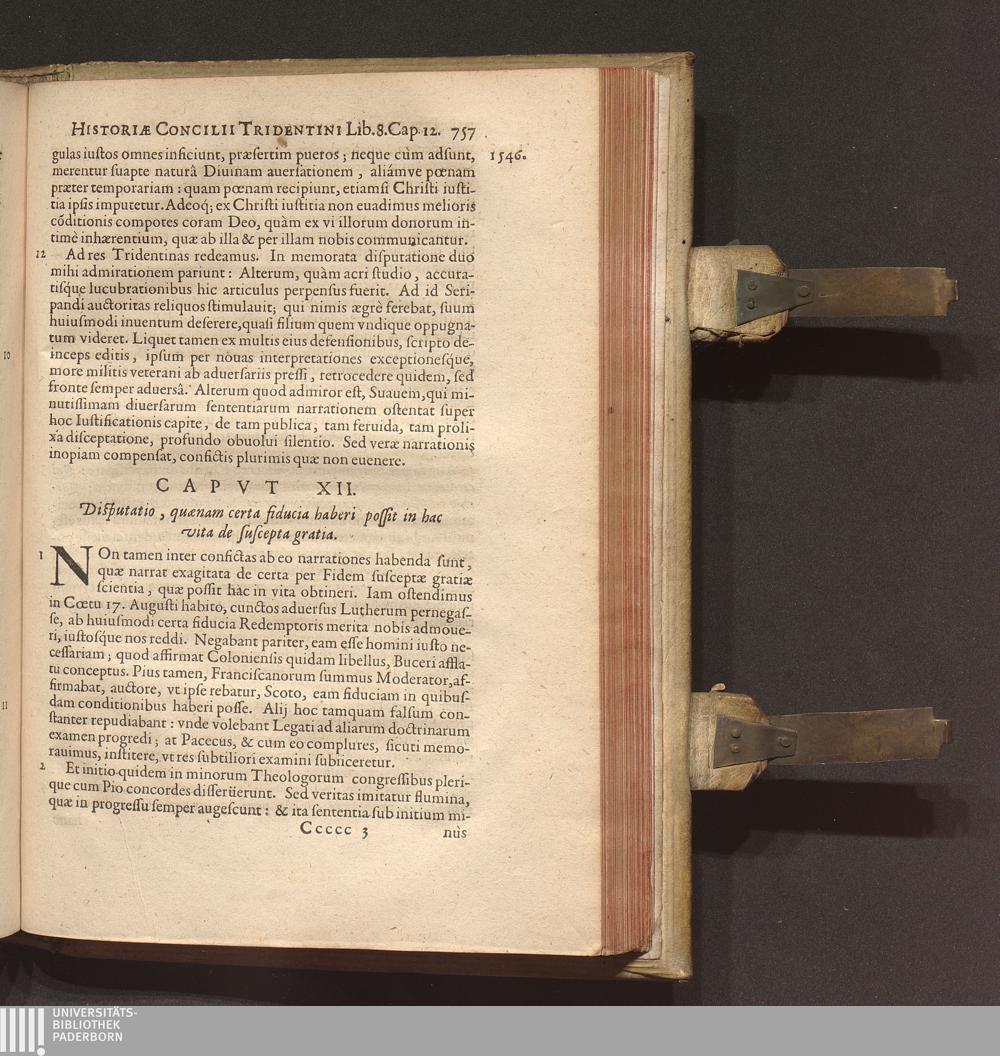 HISTORIÆ CONCILII TRIDENTINI Lib.8.Cap.12. 757
1546.
gulas iustos omnes inficiunt, præsertim pueros; neque cùm adsunt,
merentur suapte naturâ Diuinam auersationem, aliámve pœnam
præter temporariam: quam pœnam recipiunt, etiamsi Christi iusti-
tia ipsis imputetur. Adeoq; ex Christi iustitia non euadimus melioris
cõditionis compotes coram Deo, quàm ex vi illorum donorum in-
timè inhærentium, quæ ab illa & per illam nobis communicantur.
12 Ad res Tridentinas redeamus. In memorata disputatione duo
mihi admirationem pariunt: Alterum, quàm acri studio, accura-
tisq́ue lucubrationibus hic articulus perpensus fuerit. Ad id Seri-
pandi auctoritas reliquos stimulauit; qui nimis ægrè ferebat, suum
huiusmodi inuentum deserere, quasi filium quem vndique oppugna-
tum videret. Liquet tamen ex multis eius defensionibus, scripto de-
10
inceps editis, ipsum per nouas interpretationes exceptionesq́ue,
more militis veterani ab aduersariis pressi, retrocedere quidem, sed
fronte semper aduersâ. Alterum quod admiror est, Suauem, qui mi-
nutissimam diuersarum sententiarum narrationem ostentat super
hoc Iustificationis capite, de tam publica, tam feruida, tam proli-
xa disceptatione, profundo obuolui silentio. Sed veræ narrationis
inopiam compensat, confictis plurimis quæ non euenere.
CAPVT XII.
Disputatio, quænam certa fiducia haberi possit in hac
vita de suscepta gratia.
1 NOn tamen inter confictas ab eo narrationes habenda sunt,
quæ narrat exagitata de certa per Fidem susceptæ gratiæ
scientia, quæ possit hac in vita obtineri. Iam ostendimus
in Cœtu 17. Augusti habito, cunctos aduersus Lutherum pernegas-
se, ab huiusmodi certa fiducia Redemptoris merita nobis admoue-
ri, iustosq́ue nos reddi. Negabant pariter, eam esse homini iusto ne-
cessariam; quod affirmat Coloniensis quidam libellus, Buceri affla-
tu conceptus. Pius tamen, Franciscanorum summus Moderator, af-
firmabat, auctore, vt ipse rebatur, Scoto, eam fiduciam in quibus-
11
dam conditionibus haberi posse. Alij hoc tamquam falsum con-
stanter repudiabant: vnde volebant Legati ad aliarum doctrinarum
examen progredi; at Pacecus, & cum eo complures, sicuti memo-
rauimus, institere, vt res subtiliori examini subiiceretur.
2 Et initio quidem in minorum Theologorum congressibus pleri-
que cum Pio concordes disserüerunt. Sed veritas imitatur flumina,
quæ in progressu semper augescunt: & ita sententia sub initium mi-
Ccccc 3 nùs
UNIVERSITÄTS-
BIBLIOTHEK
PADERBORN